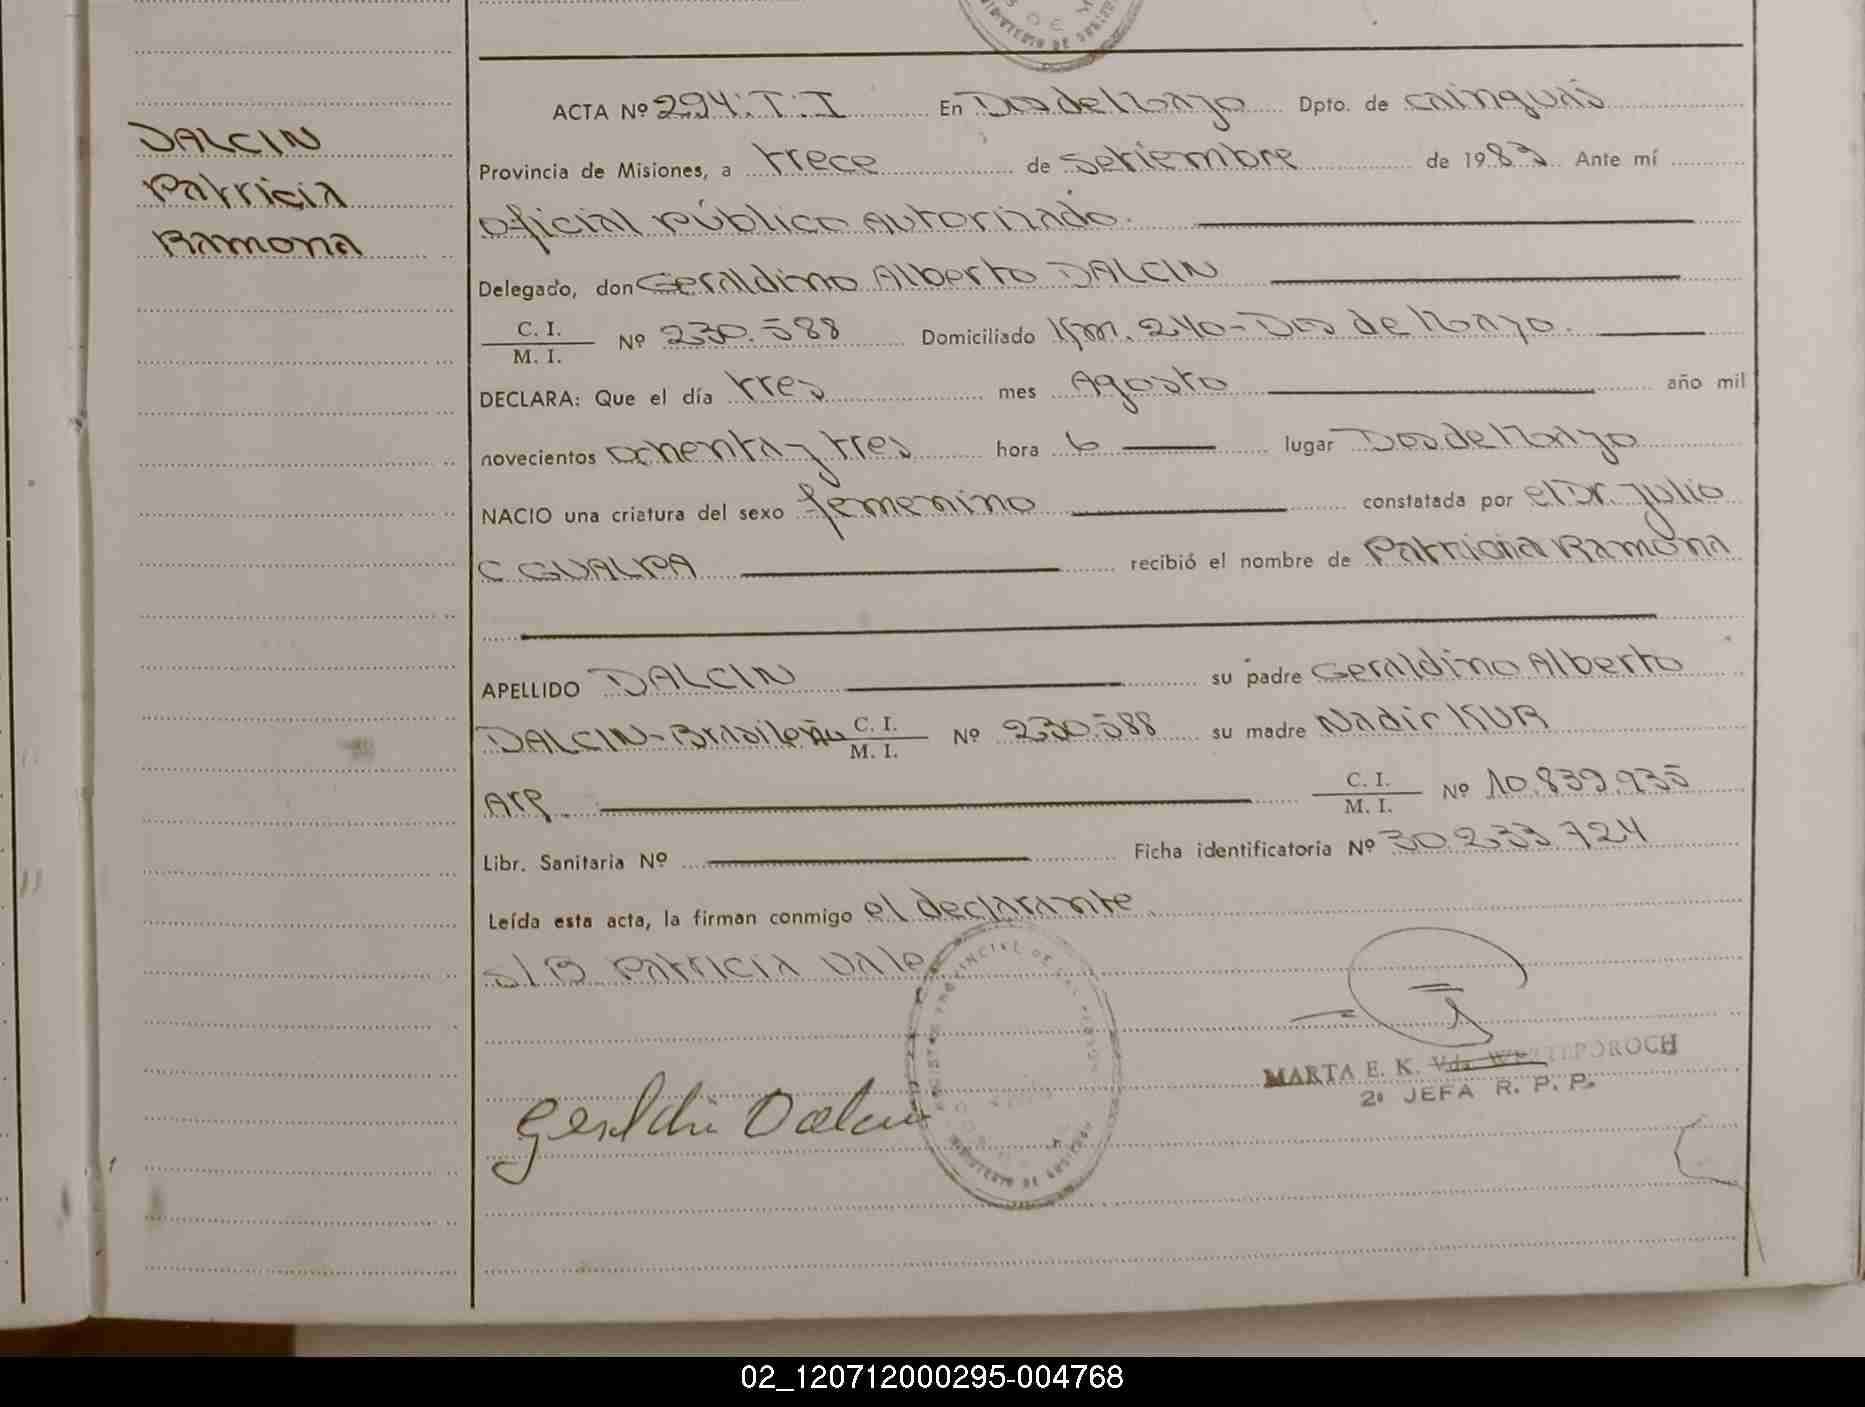 DALCIN
Patricia
Ramona
ACTA Nº 294. T. I En Dos de Mayo Dpto. de Cainguás
Provincia de Misiones, a trece de Setiembre de 1983 Ante mí
Oficial Público Autorizado.
Delegado, don Geraldino Alberto DALCIN
C. I.
M. I. Nº 230.588 Domiciliado Km. 240-Dos de Mayo.
DECLARA: Que el día tres mes Agosto año mil
novecientos ochenta y tres hora 6 lugar Dos de Mayo
NACIO una criatura del sexo femenino constatada por el Dr. Julio
C. GUALPA recibió el nombre de Patricia Ramona
APELLIDO DALCIN su padre Geraldino Alberto
DALCIN-Brasileño C. I. M. I. Nº 230.588 su madre Nadir KUR
Arg. C. I. M. I. Nº 10.839.935
Libr. Sanitaria Nº Ficha identificatoria Nº 30.233.724
Leída esta acta, la firman conmigo el declarante.
S/B Patricia Vale
Geraldi Dalcin
MARTA E. K.
2º JEFA R. P. P.
02_120712000295-004768